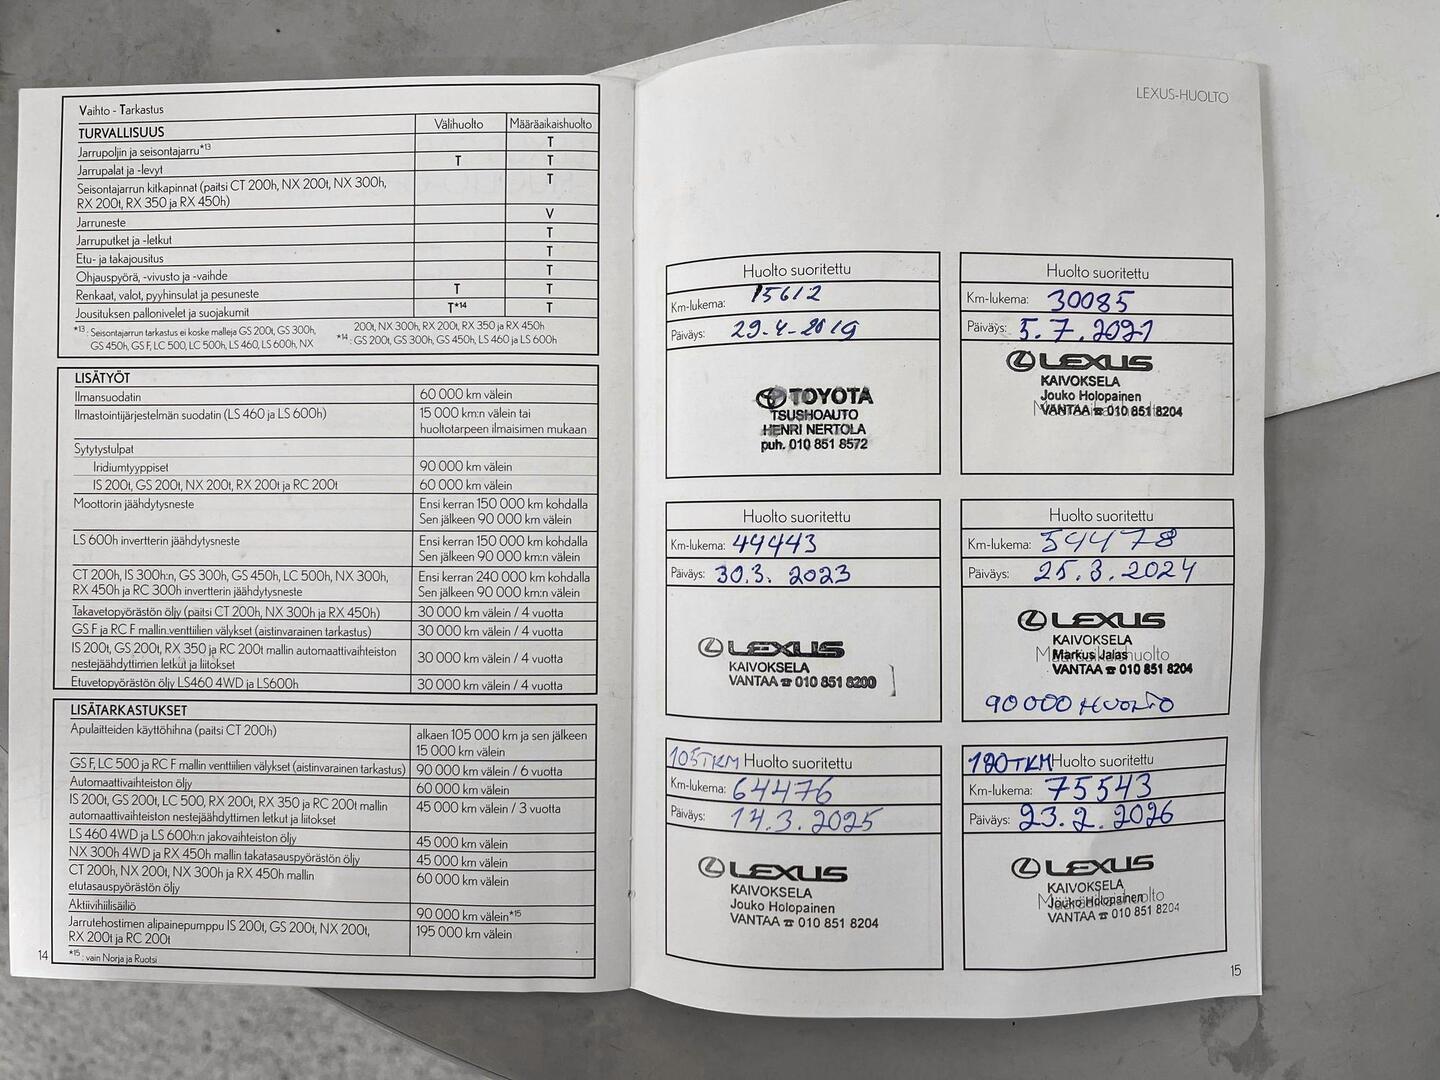 Vaihto - Tarkastus
TURVALLISUUS Välihuolto Määräaikaishuolto
Jarrupoljin ja seisontajarru*13 T
Jarrupalat ja -levyt T T
Seisontajarrun kitkapinnat (paitsi CT 200h, NX 200t, NX 300h,
RX 200t, RX 350 ja RX 450h) T
Jarruneste V
Jarruputket ja -letkut T
Etu- ja takajousitus T
Ohjauspyörä, -vivusto ja -vaihde T
Renkaat, valot, pyyhinsulat ja pesuneste T T
Jousituksen pallonivelet ja suojakumit T*14 T
*13 : Seisontajarrun tarkastus ei koske malleja GS 200t, GS 300h,
GS 450h, GS F, LC 500, LC 500h, LS 460, LS 600h, NX
200t, NX 300h, RX 200t, RX 350 ja RX 450h
*14 : GS 200t, GS 300h, GS 450h, LS 460 ja LS 600h
LISÄTYÖT
Ilmansuodatin 60 000 km välein
Ilmastointijärjestelmän suodatin (LS 460 ja LS 600h) 15 000 km:n välein tai
huoltotarpeen ilmaisimen mukaan
Sytytystulpat
Iridiumtyyppiset 90 000 km välein
IS 200t, GS 200t, NX 200t, RX 200t ja RC 200t 60 000 km välein
Moottorin jäähdytysneste Ensi kerran 150 000 km kohdalla
Sen jälkeen 90 000 km välein
LS 600h invertterin jäähdytysneste Ensi kerran 150 000 km kohdalla
Sen jälkeen 90 000 km:n välein
CT 200h, IS 300h:n, GS 300h, GS 450h, LC 500h, NX 300h,
RX 450h ja RC 300h invertterin jäähdytysneste
Ensi kerran 240 000 km kohdalla
Sen jälkeen 90 000 km:n välein
Takavetopyörästön öljy (paitsi CT 200h, NX 300h ja RX 450h) 30 000 km välein / 4 vuotta
GS F ja RC F mallin venttiilien välykset (aistinvarainen tarkastus) 30 000 km välein / 4 vuotta
IS 200t, GS 200t, RX 350 ja RC 200t mallin automaattivaihteiston
nestejäähdyttimen letkut ja liitokset 30 000 km välein / 4 vuotta
Etuvetopyörästön öljy LS460 4WD ja LS600h 30 000 km välein / 4 vuotta
LISÄTARKASTUKSET
Apulaitteiden käyttöhihna (paitsi CT 200h) alkaen 105 000 km ja sen jälkeen
15 000 km välein
GS F, LC 500 ja RC F mallin venttiilien välykset (aistinvarainen tarkastus) 90 000 km välein / 6 vuotta
Automaattivaihteiston öljy 60 000 km välein
IS 200t, GS 200t, LC 500, RX 200t, RX 350 ja RC 200t mallin
automaattivaihteiston nestejäähdyttimen letkut ja liitokset 45 000 km välein / 3 vuotta
LS 460 4WD ja LS 600h:n jakovaihteiston öljy 45 000 km välein
NX 300h 4WD ja RX 450h mallin takatasauspyörästön öljy 45 000 km välein
CT 200h, NX 200t, NX 300h ja RX 450h mallin
etutasauspyörästön öljy 60 000 km välein
Aktiivihiilisäiliö 90 000 km välein*15
Jarrutehostimen alipainepumppu IS 200t, GS 200t, NX 200t,
RX 200t ja RC 200t 195 000 km välein
*15 : vain Norja ja Ruotsi
14
LEXUS-HUOLTO
Huolto suoritettu
Km-lukema: 15612
Päiväys: 29.4-2019
TOYOTA
TSUSHOAUTO
HENRI NERTOLA
puh. 010 851 8572
Huolto suoritettu
Km-lukema: 30085
Päiväys: 5.7.2021
LEXUS
KAIVOKSELA
Jouko Holopainen
VANTAA ☎ 010 851 8204
Huolto suoritettu
Km-lukema: 44443
Päiväys: 30.3. 2023
LEXUS
KAIVOKSELA
VANTAA ☎ 010 851 8200
Huolto suoritettu
Km-lukema: 54478
Päiväys: 25.3.2024
LEXUS
KAIVOKSELA
Markus Jalas
Määräaikaishuolto
VANTAA ☎ 010 851 8204
90000 HUOLTO
105TKM Huolto suoritettu
Km-lukema: 64476
Päiväys: 14.3.2025
LEXUS
KAIVOKSELA
Jouko Holopainen
VANTAA ☎ 010 851 8204
120TKM Huolto suoritettu
Km-lukema: 75543
Päiväys: 23.2.2026
LEXUS
KAIVOKSELA
Jouko Holopainen
Määräaikaishuolto
VANTAA ☎ 010 851 8204
15